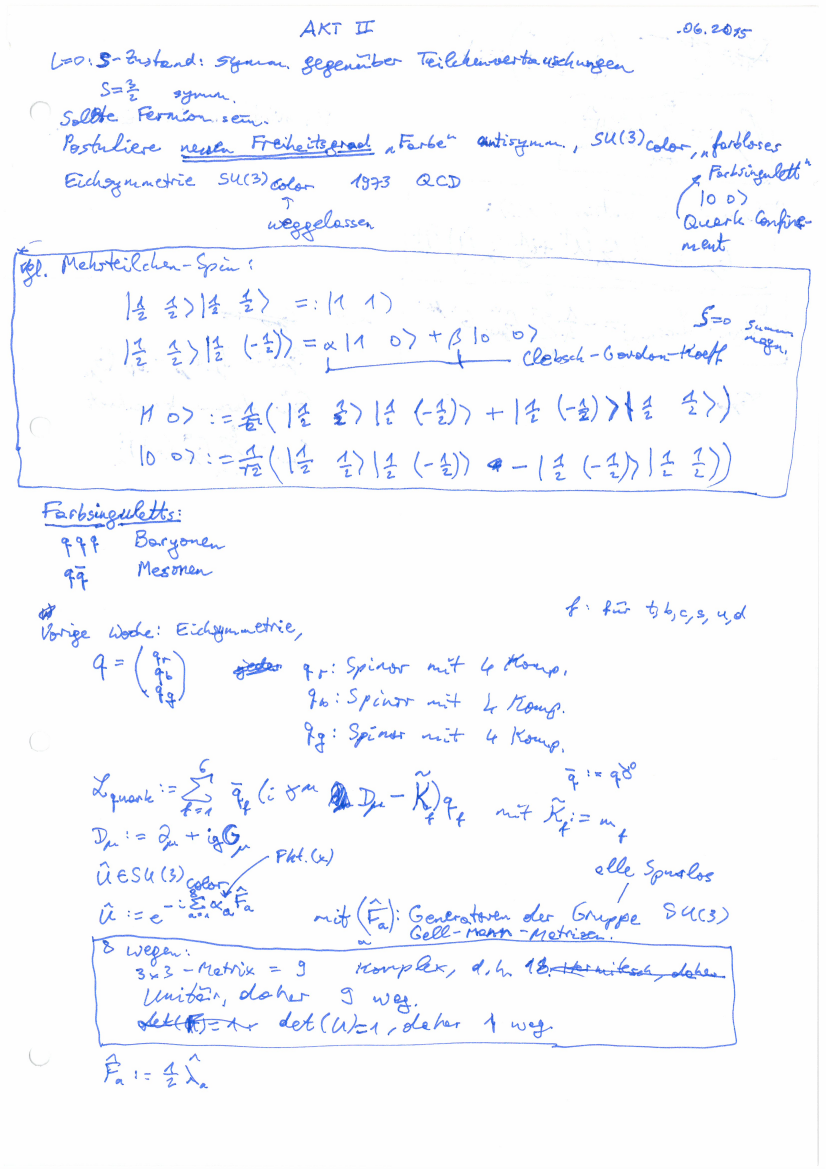 AKT II
.06.2015
L=0: S-Zustand: symm. gegenüber Teilchenvertauschungen
S=3/2 symm.
Sollte Fermion sein.
Postuliere neuen Freiheitsgrad „Farbe“ antisymm., SU(3)color, „farbloses
Farbsingulett“
|0 0>
Quark Confine-
ment
Eichsymmetrie SU(3)color 1973 QCD
↑
weggelassen
vgl. Mehrteilchen-Spin:
|1/2 1/2>|1/2 1/2> =: |1 1>
|1/2 1/2>|1/2 (-1/2)> = α|1 0> + β|0 0>
Clebsch-Gordon-Koeff
S=0
|1 0> := 1/√2 (|1/2 1/2>|1/2 (-1/2)> + |1/2 (-1/2)>|1/2 1/2>)
|0 0> := 1/√2 (|1/2 1/2>|1/2 (-1/2)> - |1/2 (-1/2)>|1/2 1/2>)
Farbsinguletts:
qqq Baryonen
qq̄ Mesonen
f: für t,b,c,s,u,d
Vorige Woche: Eichsymmetrie,
q = (qr qb qg)
qr: Spinor mit 4 Komp.
qb: Spinor mit 4 Komp.
qg: Spinor mit 4 Komp.
q̄ := qγ⁰
ℒquark := Σ_{f=1}^{6} q̄_f (i γ^μ D_μ - K̃_f) q_f mit K̃_f := m_f
D_μ := ∂_μ + igG_μ
Û ∈ SU(3)color
Fkt.(x)
alle Spurlos
Û := e^{-i Σ_{a=1}^{8} α_a F̂_a} mit (F̂_a)_a: Generatoren der Gruppe SU(3)
Gell-Mann-Matrizen.
8 wegen:
3x3-Matrix = 9 Komplex, d.h. 18 Hermitesch, daher
Unitär, daher 9 weg.
det(F)=1 det(U)=1, daher 1 weg
F̂_a := 1/2 λ̂_a